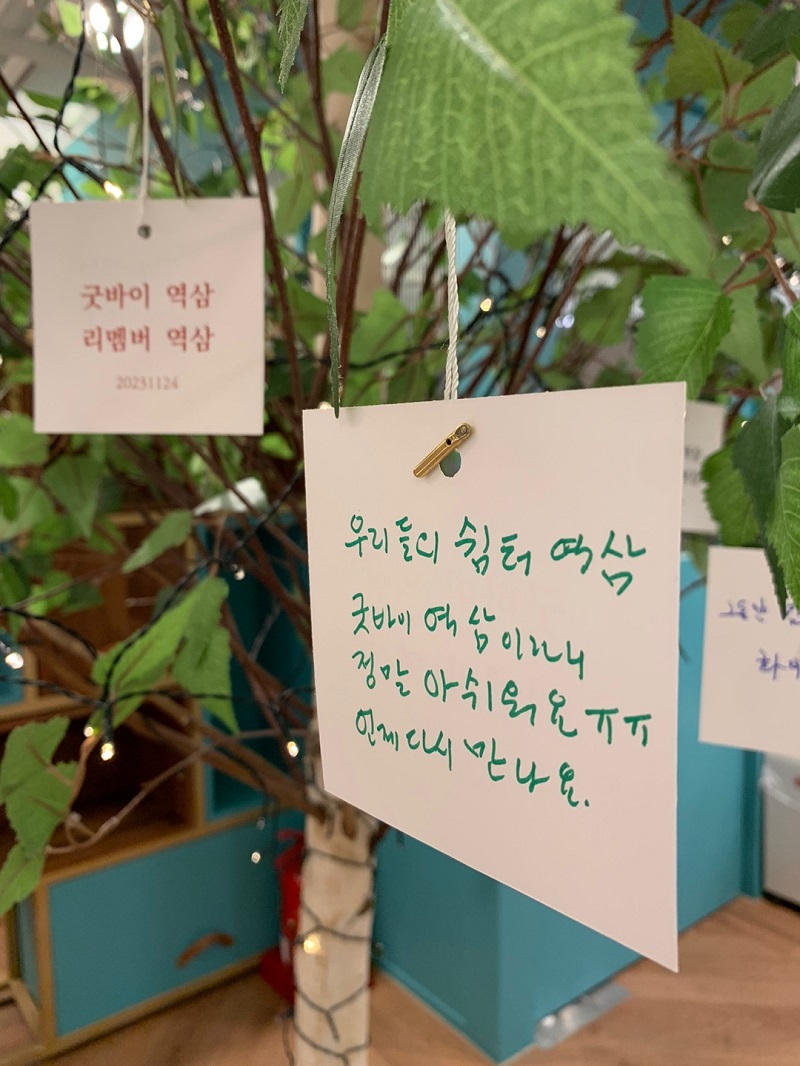 굿바이 역삼
리멤버 역삼
20231124
우리들의 쉼터 역삼
굿바이 역삼이라니
정말 아쉬워요 ㅠㅠ
언제 다시 만나요.
그동안